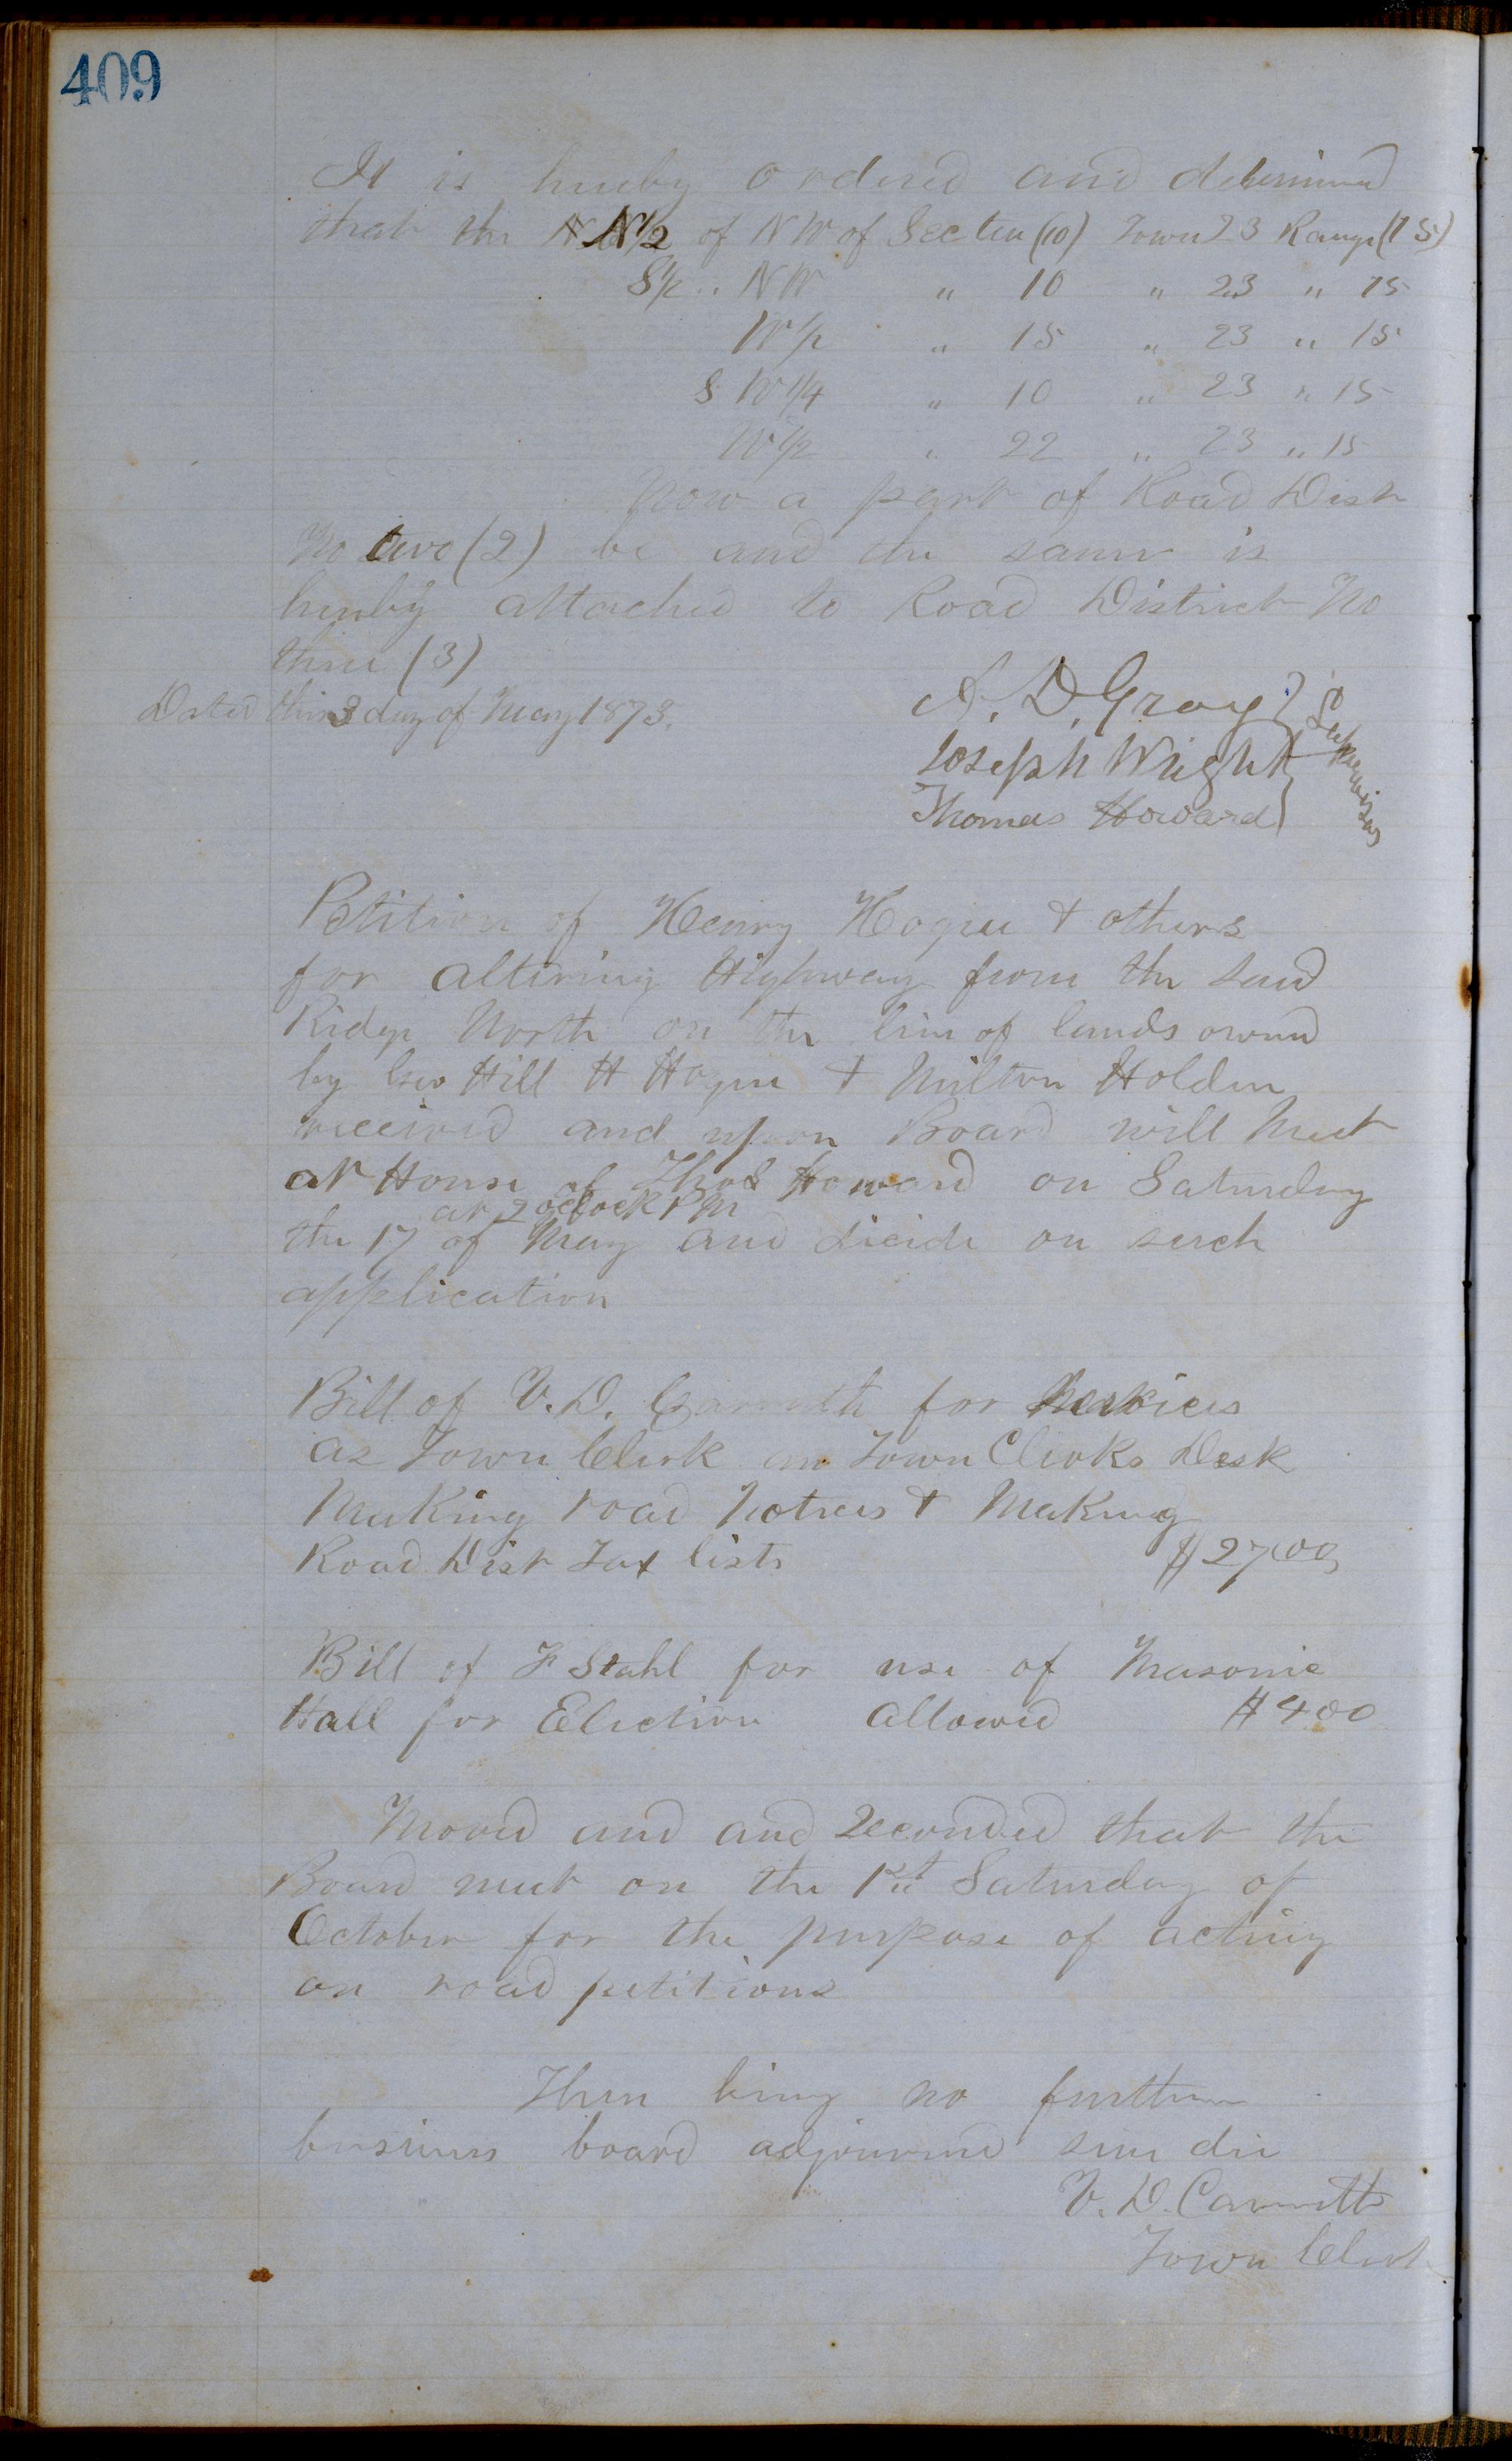 409
It is hereby ordered and determined
that the N 1/2 of NW of Section (10) Town 23 Range (15)
S 1/2 " NW " 10 " 23 " 15
W 1/2 " 15 " 23 " 15
S W 1/4 " 10 " 23 " 15
W 1/2 " 22 " 23 " 15
now a part of Road Dist
No two (2) be and the same is
hereby attached to Road District No
three (3)
Dated this 3 day of May 1873.
A. D. Gray
Joseph Wright
Thomas Howard
Supervisors
Petition of Henry Hogue & others
for altering Highway from the Sand
Ridge North on the line of lands owned
by Geo Hill H Hogue & Milton Holden
received and upon Board will Meet
at House of Thos Howard on Saturday
at 2 oclock PM
the 17 of May and decide on such
application
Bill of V. D. for
as Town Clerk Town Clerks Desk
Making road Notices & Making
Road Dist Tax lists $27.00
Bill of F Stahl for use of Masonic
Hall for Election allowed $4.00
Moved and and Seconded that the
Board meet on the 1st Saturday of
October for the purpose of acting
on road petitions
There being no further
business board adjourned sine die
V. D. Carruth
Town Clerk